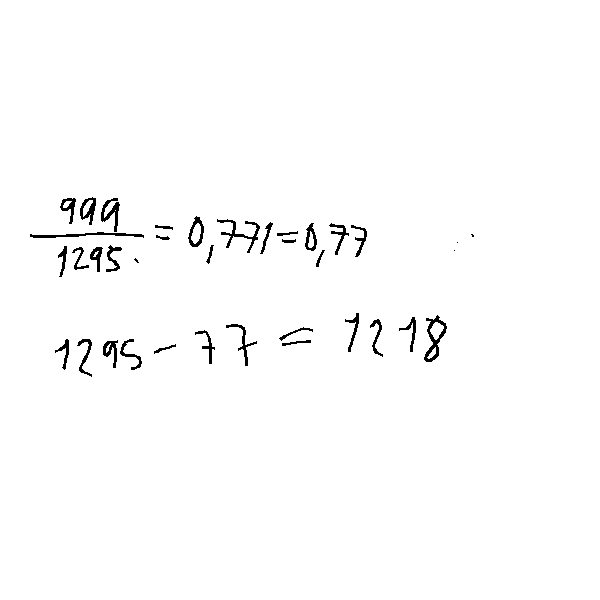 999/1295 = 0,771 = 0,77
1295 - 77 = 1218